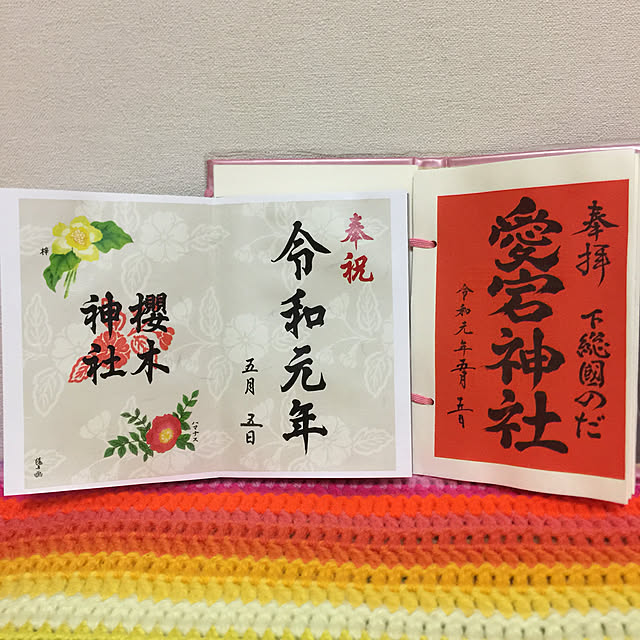 奉祝
令和元年
五月 五日
櫻木
神社
ハマナス
奉拝
下総國のだ
愛宕神社
令和元年五月五日